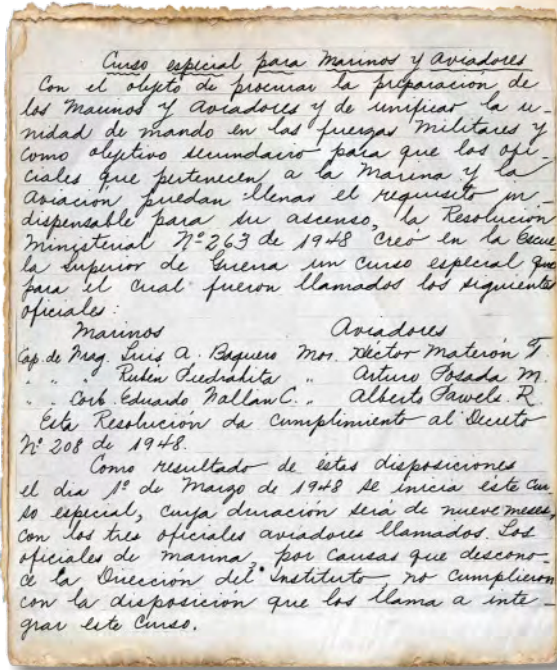 Curso especial para Marinos y Aviadores
Con el objeto de procurar la preparación de
los Marinos y Aviadores y de unificar la u-
nidad de mando en las fuerzas militares y
como objetivo secundario para que los ofi-
ciales que pertenecen a la Marina y la
Aviación puedan llenar el requisito in-
dispensable para su ascenso, la Resolución
Ministerial Nº 263 de 1948 creó en la Escue
la Superior de Guerra un curso especial que
para el cual fueron llamados los siguientes
oficiales:
Marinos Aviadores
Cap. de Luis A. Baquero Héctor Materón T.
" " " Rubén Piedrahita " Arturo Posada M.
" " Corb. Eduardo C. " Alberto Pawels. R
Esta Resolución da cumplimiento al Decreto
Nº 208 de 1948.
Como resultado de éstas disposiciones
el dia 1º de Marzo de 1948 se inicia éste cur
so especial, cuya duración será de nueve meses,
con los tres oficiales aviadores llamados. Los
oficiales de marina, por causas que descono-
ce la Dirección del Instituto, no cumplieron
con la disposición que los llama a inte-
grar este curso.